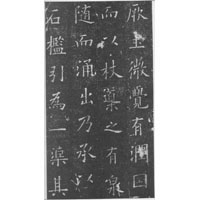 厥土微覺有潤因
而以杖導之有泉
隨而涌出乃承以
石檻引為一渠其